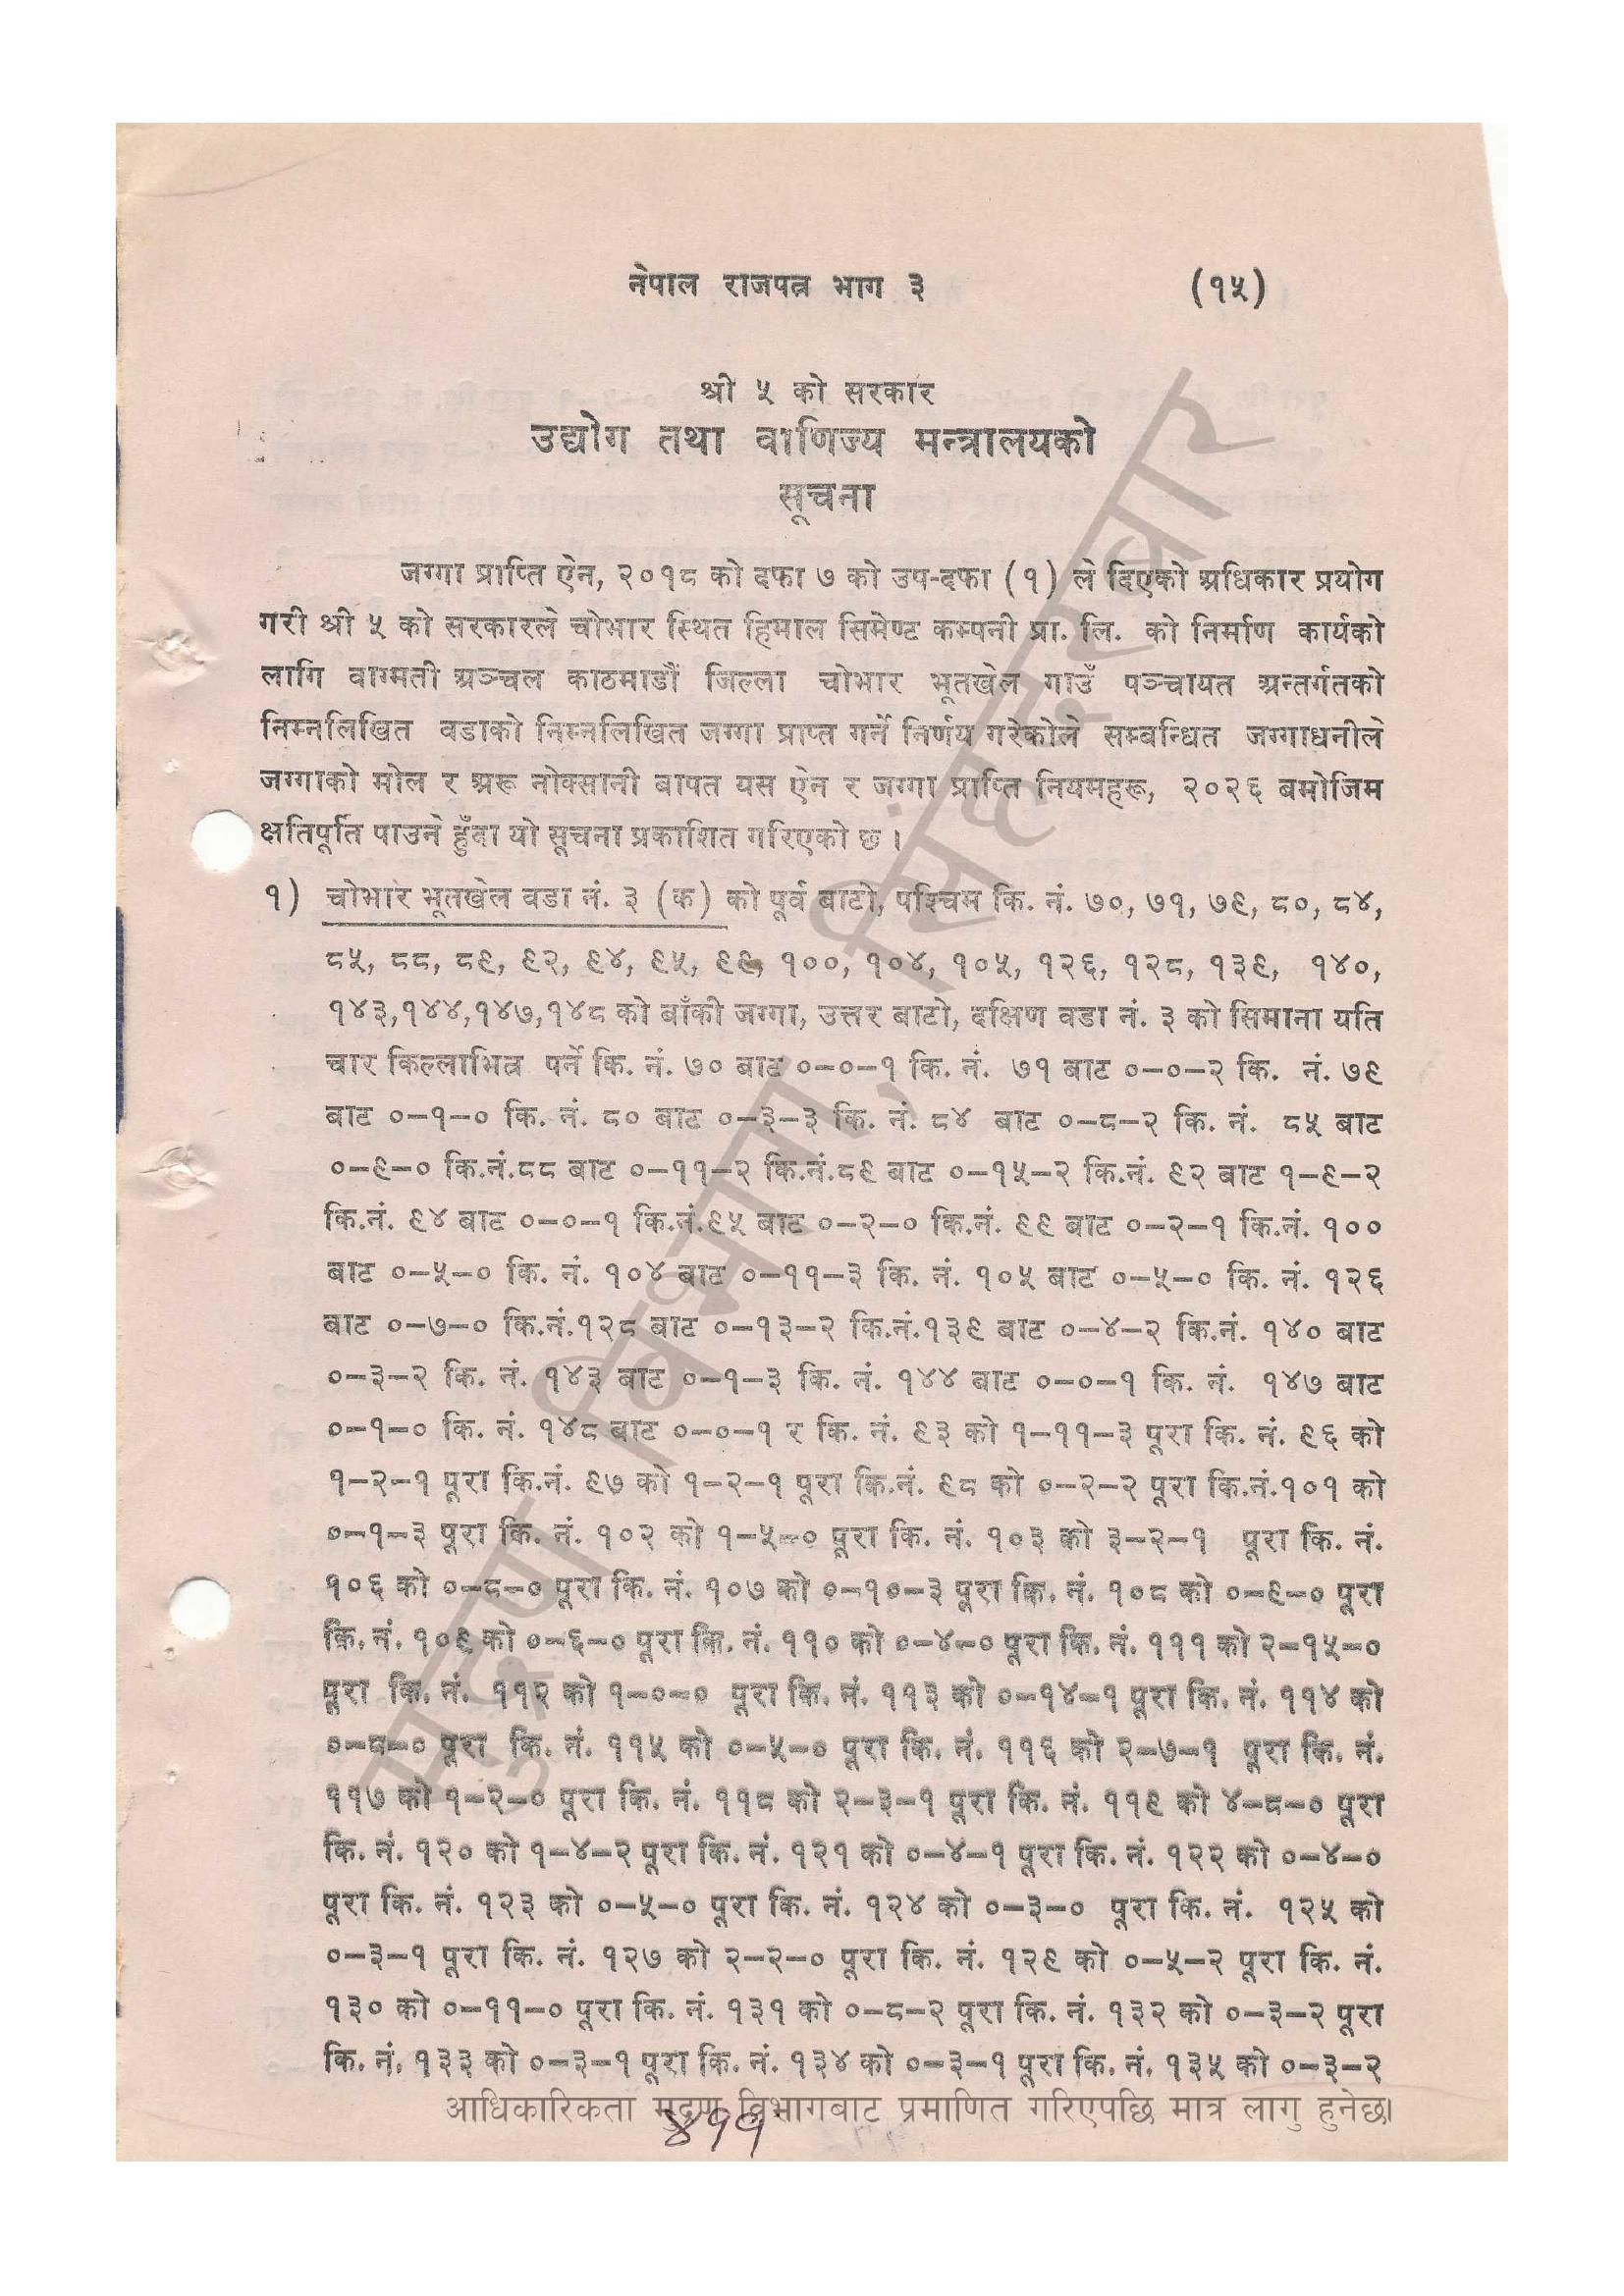 नेपाल राजपत्र भाग ३ (१५)
श्री ५ को सरकार
उद्योग तथा वाणिज्य मन्त्रालयको
सूचना
जग्गा प्राप्ति ऐन, २०१८ को दफा ७ को उप-दफा (१) ले दिएको अधिकार प्रयोग
गरी श्री ५ को सरकारले चोभार स्थित हिमाल सिमेण्ट कम्पनी प्रा. लि. को निर्माण कार्यको
लागि वाग्मती अञ्चल काठमाडौं जिल्ला चोभार भूतखेल गाउँ पञ्चायत अन्तर्गतको
निम्नलिखित वडाको निम्नलिखित जग्गा प्राप्त गर्ने निर्णय गरेकोले सम्बन्धित जग्गाधनीले
जग्गाको मोल र अरू नोक्सानी बापत यस ऐन र जग्गा प्राप्ति नियमहरू, २०२६ बमोजिम
क्षतिपूर्ति पाउने हुँदा यो सूचना प्रकाशित गरिएको छ ।
१) चोभार भूतखेल वडा नं. ३ (क) को पूर्व बाटो, पश्चिम कि. नं. ७०, ७१, ७९, ८०, ८४,
८५, ८८, ८९, ९२, ९४, ९५, ९९, १००, १०४, १०५, १२६, १२८, १३९, १४०,
१४३,१४४,१४७,१४८ को बाँकी जग्गा, उत्तर बाटो, दक्षिण वडा नं. ३ को सिमाना यति
चार किल्लाभित्र पर्ने कि. नं. ७० बाट ०–०–१ कि. नं. ७१ बाट ०–०–२ कि. नं. ७९
बाट ०–१–० कि. नं. ८० बाट ०–३–३ कि. नं. ८४ बाट ०–८–२ कि. नं. ८५ बाट
०–९–० कि.नं.८८ बाट ०–११–२ कि.नं.८९ बाट ०–१५–२ कि.नं. ९२ बाट १–९–२
कि.नं. ९४ बाट ०–०–१ कि.नं.९५ बाट ०–२–० कि.नं. ९९ बाट ०–२–१ कि.नं. १००
बाट ०–५–० कि. नं. १०४ बाट ०–११–३ कि. नं. १०५ बाट ०–५–० कि. नं. १२६
बाट ०–७–० कि.नं.१२८ बाट ०–१३–२ कि.नं.१३९ बाट ०–४–२ कि.नं. १४० बाट
०–३–२ कि. नं. १४३ बाट ०–१–३ कि. नं. १४४ बाट ०–०–१ कि. नं. १४७ बाट
०–१–० कि. नं. १४८ बाट ०–०–१ र कि. नं. ९३ को १–११–३ पूरा कि. नं. ९६ को
१–२–१ पूरा कि.नं. ९७ को १–२–१ पूरा कि.नं. ९८ को ०–२–२ पूरा कि.नं.१०१ को
०–१–३ पूरा कि. नं. १०२ को १–५–० पूरा कि. नं. १०३ को ३–२–१ पूरा कि. नं.
१०६ को ०–८–० पूरा कि. नं. १०७ को ०–१०–३ पूरा कि. नं. १०८ को ०–९–० पूरा
कि. नं. १०९ को ०–६–० पूरा कि. नं. ११० को ०–४–० पूरा कि. नं. १११ को २–१५–०
पूरा कि. नं. ११२ को १–०–० पूरा कि. नं. ११३ को ०–१४–१ पूरा कि. नं. ११४ को
पूरा कि. नं. ११५ को ०–५–० पूरा कि. नं. ११६ को २–७–१ पूरा कि. नं.
११७ को १–२–० पूरा कि. नं. ११८ को २–३–१ पूरा कि. नं. ११९ को ४–८–० पूरा
कि. नं. १२० को १–४–२ पूरा कि. नं. १२१ को ०–४–१ पूरा कि. नं. १२२ को ०–४–०
पूरा कि. नं. १२३ को ०–५–० पूरा कि. नं. १२४ को ०–३–० पूरा कि. नं. १२५ को
०–३–१ पूरा कि. नं. १२७ को २–२–० पूरा कि. नं. १२९ को ०–५–२ पूरा कि. नं.
१३० को ०–११–० पूरा कि. नं. १३१ को ०–८–२ पूरा कि. नं. १३२ को ०–३–२ पूरा
कि. नं. १३३ को ०–३–१ पूरा कि. नं. १३४ को ०–३–१ पूरा कि. नं. १३५ को ०–३–२
आधिकारिकता मुद्रण विभागबाट प्रमाणित गरिएपछि मात्र लागु हुनेछ।
४११
मुद्रण विभाग, सिंहदरबार